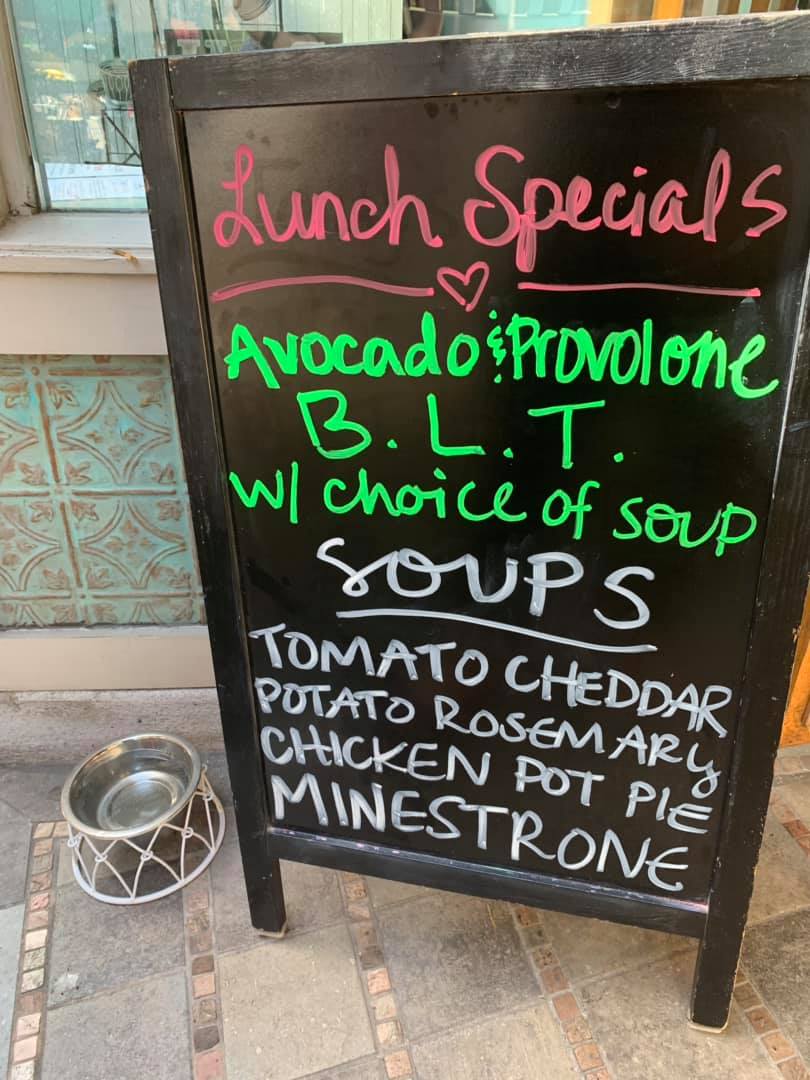 Lunch Specials
Avocado & Provolone
B.L.T.
w/ choice of soup
SOUPS
TOMATO CHEDDAR
POTATO ROSEMARY
CHICKEN POT PIE
MINESTRONE